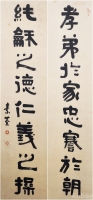 孝弟於家忠謇於朝
純龢之德仁義之操